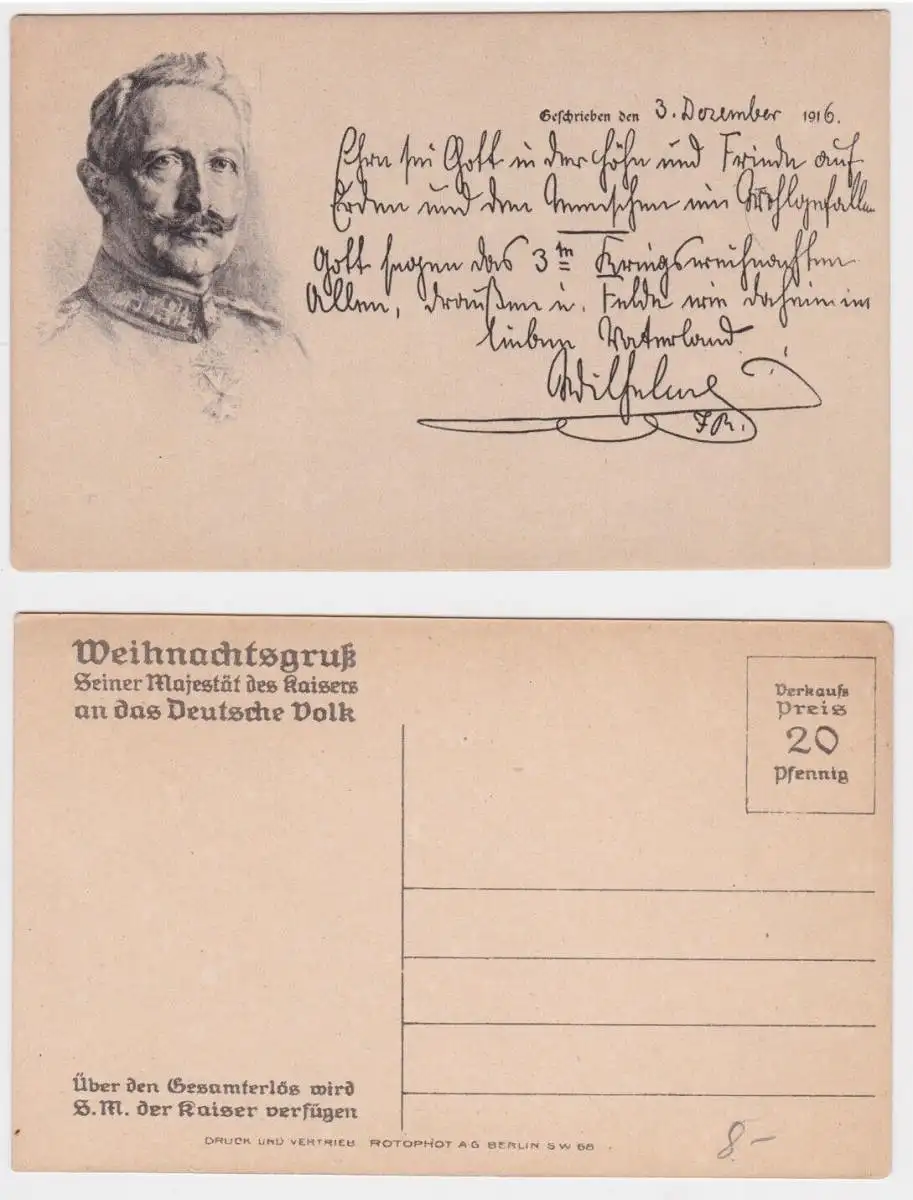 Geschrieben den 3. Dezember 1916.
Ehre sei Gott in der Höhe und Friede auf
Erden und den Menschen ein Wohlgefallen
Gott segne das 3te Kriegsweihnachten
Allen, draußen i. Felde wie daheim im
lieben Vaterland
Wilhelm
I.R.
Weihnachtsgruß
Seiner Majestät des Kaisers
an das Deutsche Volk
Verkaufs
Preis
20
Pfennig
Über den Gesamterlös wird
S.M. der Kaiser verfügen
DRUCK UND VERTRIEB ROTOPHOT AG BERLIN SW 68
8.-